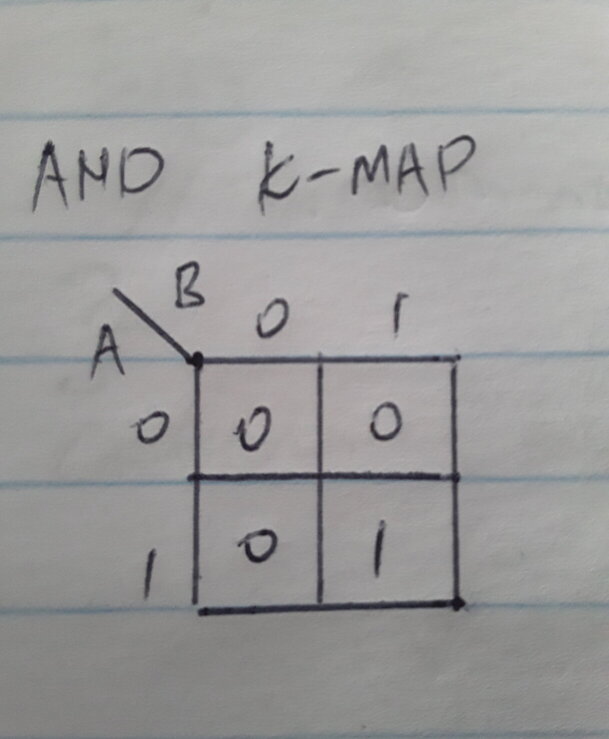 AND K-MAP
B
A 0 1
0 0 0
1 0 1